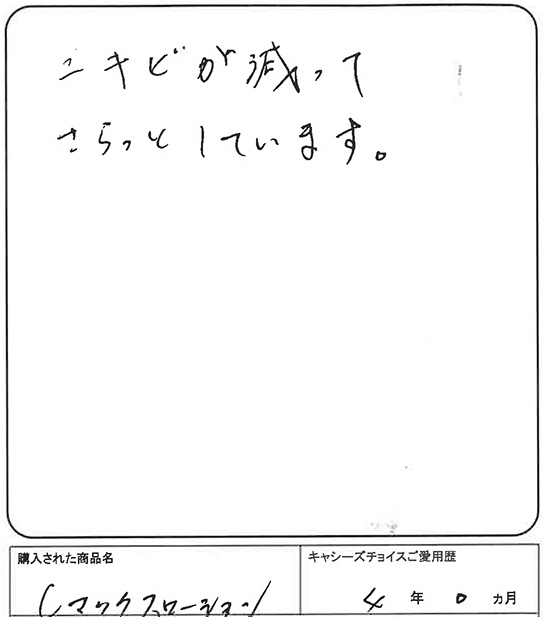 ニキビが減って
さらっとしています。
購入された商品名
キャシーズチョイスご愛用歴
Cマックスローション
4 年 0 ヵ月